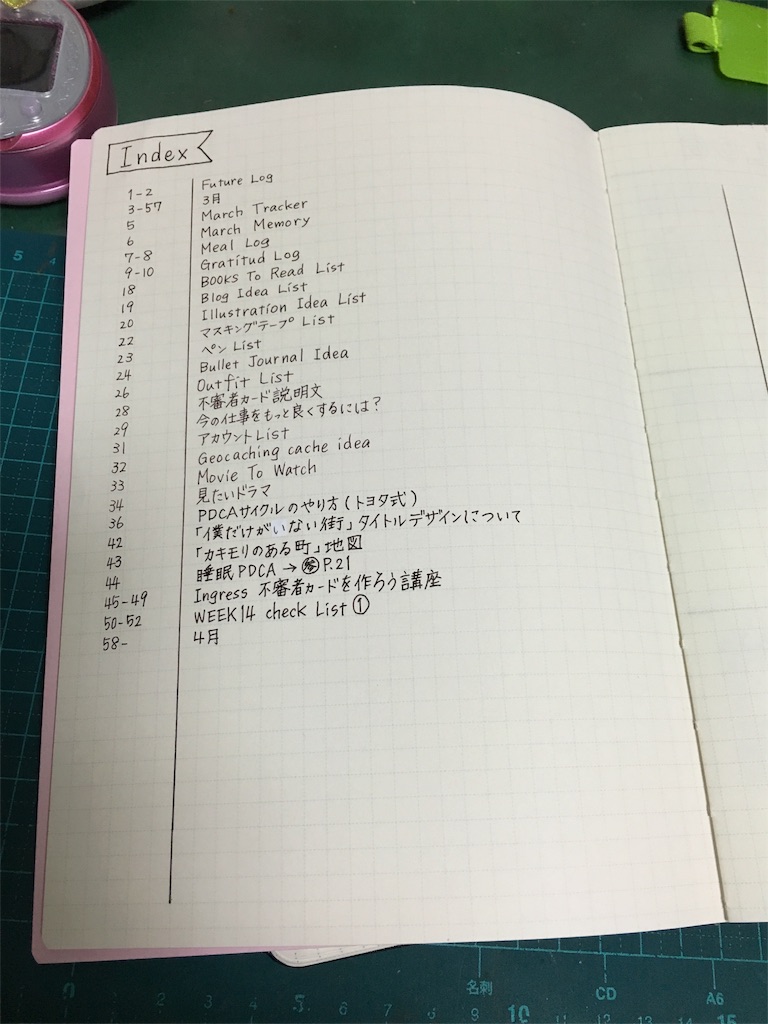 Index
1-2 Future Log
3-57 3月
5 March Tracker
6 March Memory
7-8 Meal Log
9-10 Gratitud Log
18 BOOKS To Read List
19 Blog Idea List
20 Illustration Idea List
22 マスキングテープ List
23 ペン List
24 Bullet Journal Idea
26 Outfit List
28 不審者カード説明文
29 今の仕事をもっと良くするには？
31 アカウントList
32 Geocaching cache idea
33 Movie To Watch
34 見たいドラマ
36 PDCAサイクルのやり方(トヨタ式)
42 「僕だけがいない街」タイトルデザインについて
43 「カキモリのある町」地図
44 睡眠PDCA→㊕P.21
45-49 Ingress 不審者カードを作ろう講座
50-52 WEEK14 check List①
58- 4月
5 4
名刺 CD A6
0 2 3 4 5 6 7 8 9 10 12 13 14 15